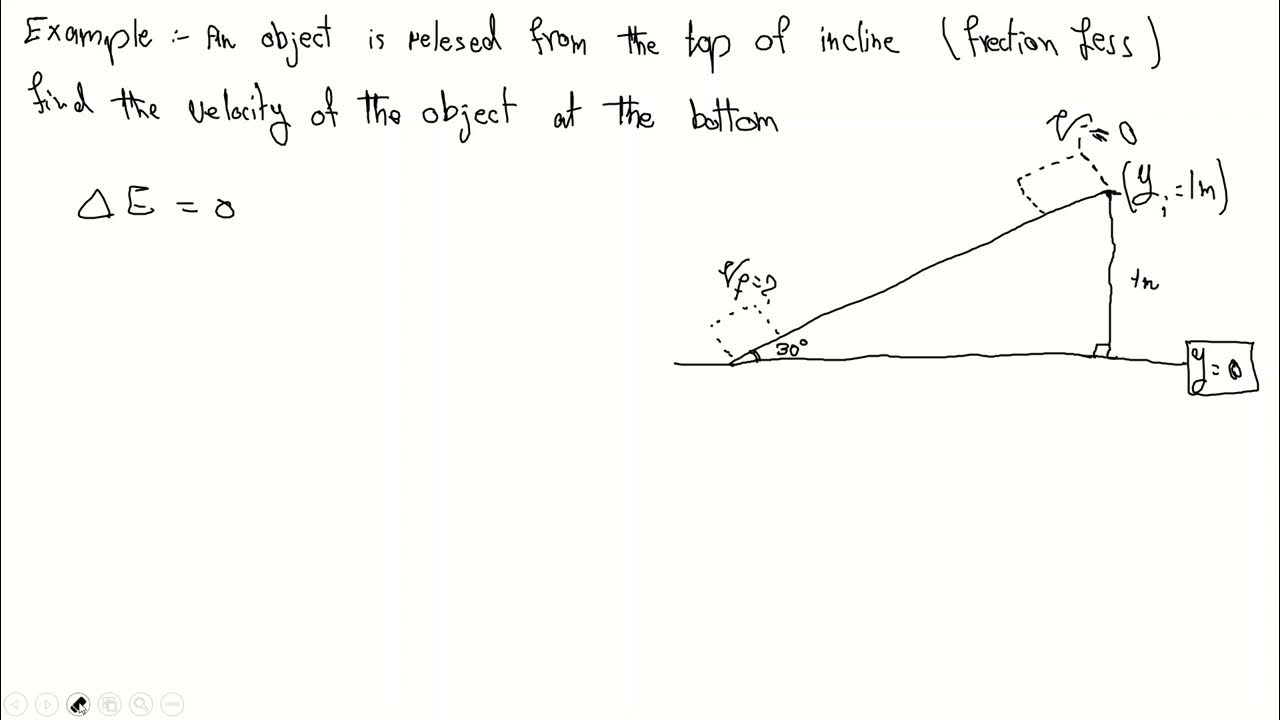 Example :- An object is relesed from the top of incline (frection less)
find the velocity of the object at the bottom
Vi = 0
(yi = 1m)
ΔE = 0
Vf = ?
1m
30°
y = 0